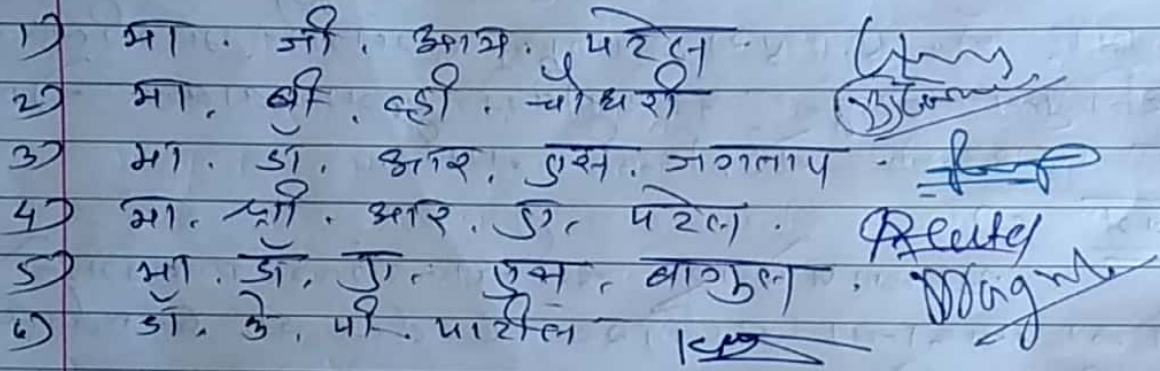 1) मा. जी. आय. पटेल
2) मा. बी. व्ही. चौधरी
3) मा. डॉ. आर. एस. जगताप
4) मा. श्री. आर. ए. पटेल.
5) मा. डॉ. ए. एस. बागुल.
6) डॉ. के. पी. पाटील